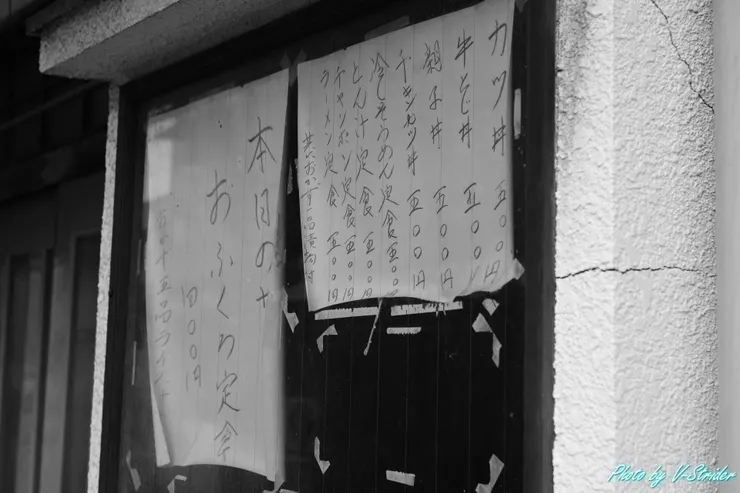 カツ丼 五〇〇円
牛とじ丼 五〇〇円
親子丼 五〇〇円
チキンカツ丼 五〇〇円
冷しそうめん定食 五〇〇円
とん汁定食 五〇〇円
チャンポン定食 五〇〇円
ラーメン定食 五〇〇円
本日の
おふくろ定食
Photo by V-Strider